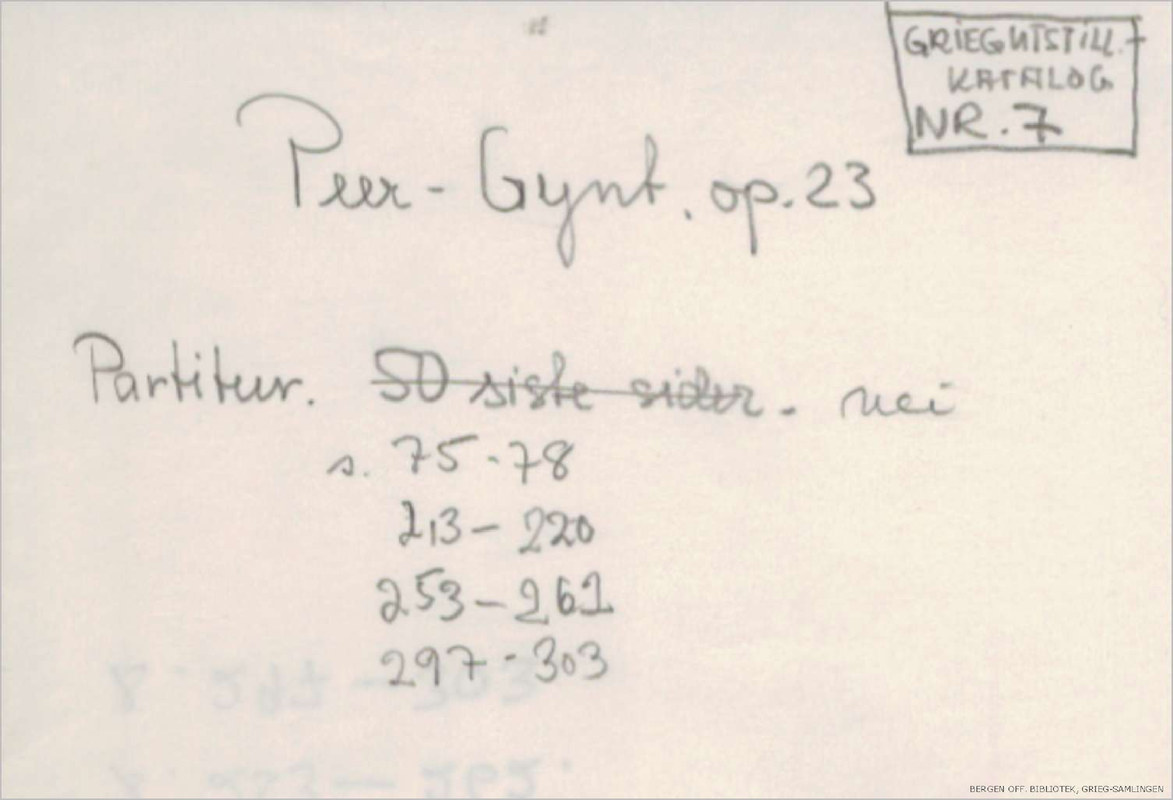 GRIEGUTSTILL.-
KATALOG
NR. 7
Peer-Gynt. op. 23
Partitur. 50 siste sider. nei
s. 75-78
213-220
253-261
297-303
BERGEN OFF. BIBLIOTEK, GRIEG-SAMLINGEN